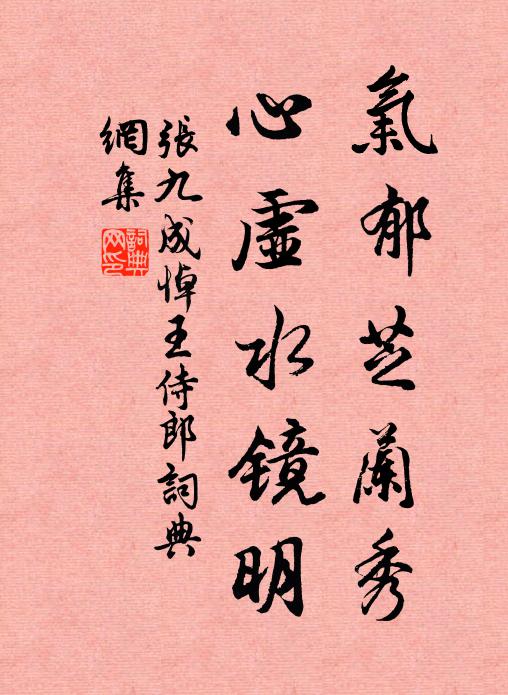 氣郁芝蘭秀
心虛水鏡明
張九成悼王侍郎詞典
網集
詞典網印